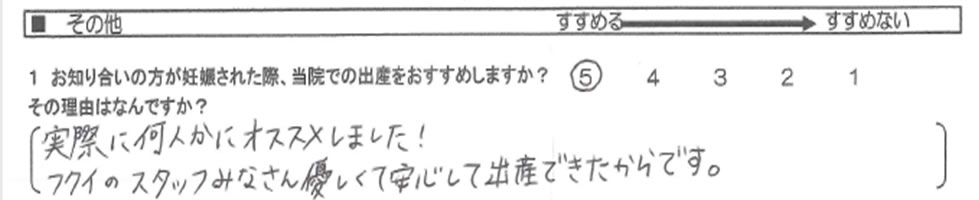 ■ その他 すすめる すすめない
1 お知り合いの方が妊娠された際、当院での出産をおすすめしますか? ⑤ 4 3 2 1
その理由はなんですか?
実際に何人かにオススメしました!
フクイのスタッフみなさん優しくて安心して出産できたからです。